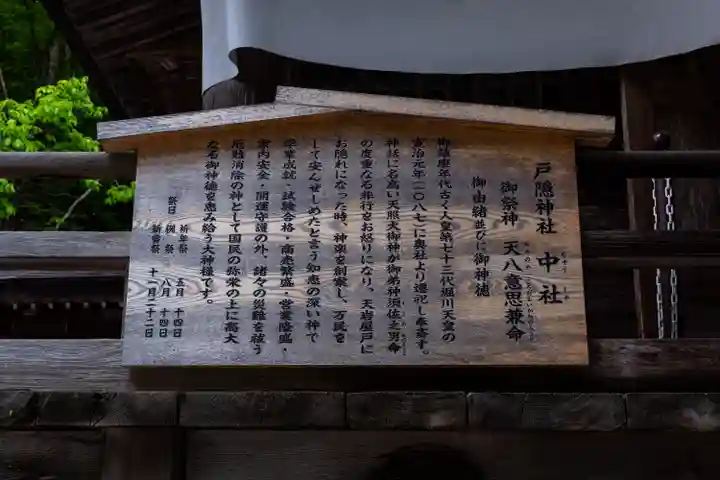 戸隠神社 中社
ちゅう しゃ
御祭神 天八意思兼命
御由緒並びに御神徳
御鎮座年代古く人皇第七十三代堀川天皇の
寛治元年(一〇八七)に奥社より遷祀し奉斎す。
神話に名高い天照大御神が御弟神須佐之男命
の度重なる非行をお怒りになり、天岩屋戸に
お隠れになった時、神楽を創案し、万民を
して安んぜしめたと言う知恵の深い神で
学業成就・試験合格・商売繁盛・営業隆盛・
家内安全・開運守護の外、諸々の災難を祓う
厄難消除の神として国民の弥栄の上に高大
なる御神徳を恵み給う大神様です。
祭日 祈年祭 五月 十四日
例祭 八月 十四日
新嘗祭 十一月二十二日